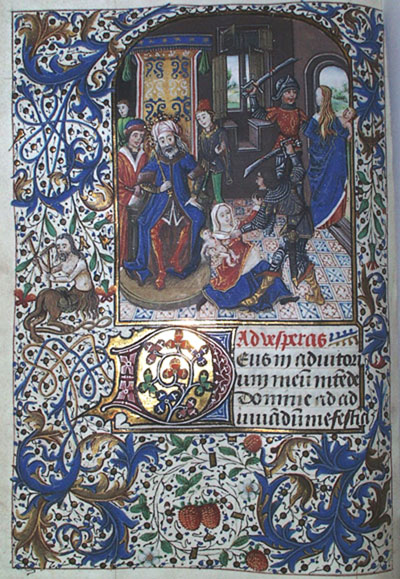 Ad vesperas
Deus in adiutori
um meū intēde
Domine ad ad
iuuādū me festīa